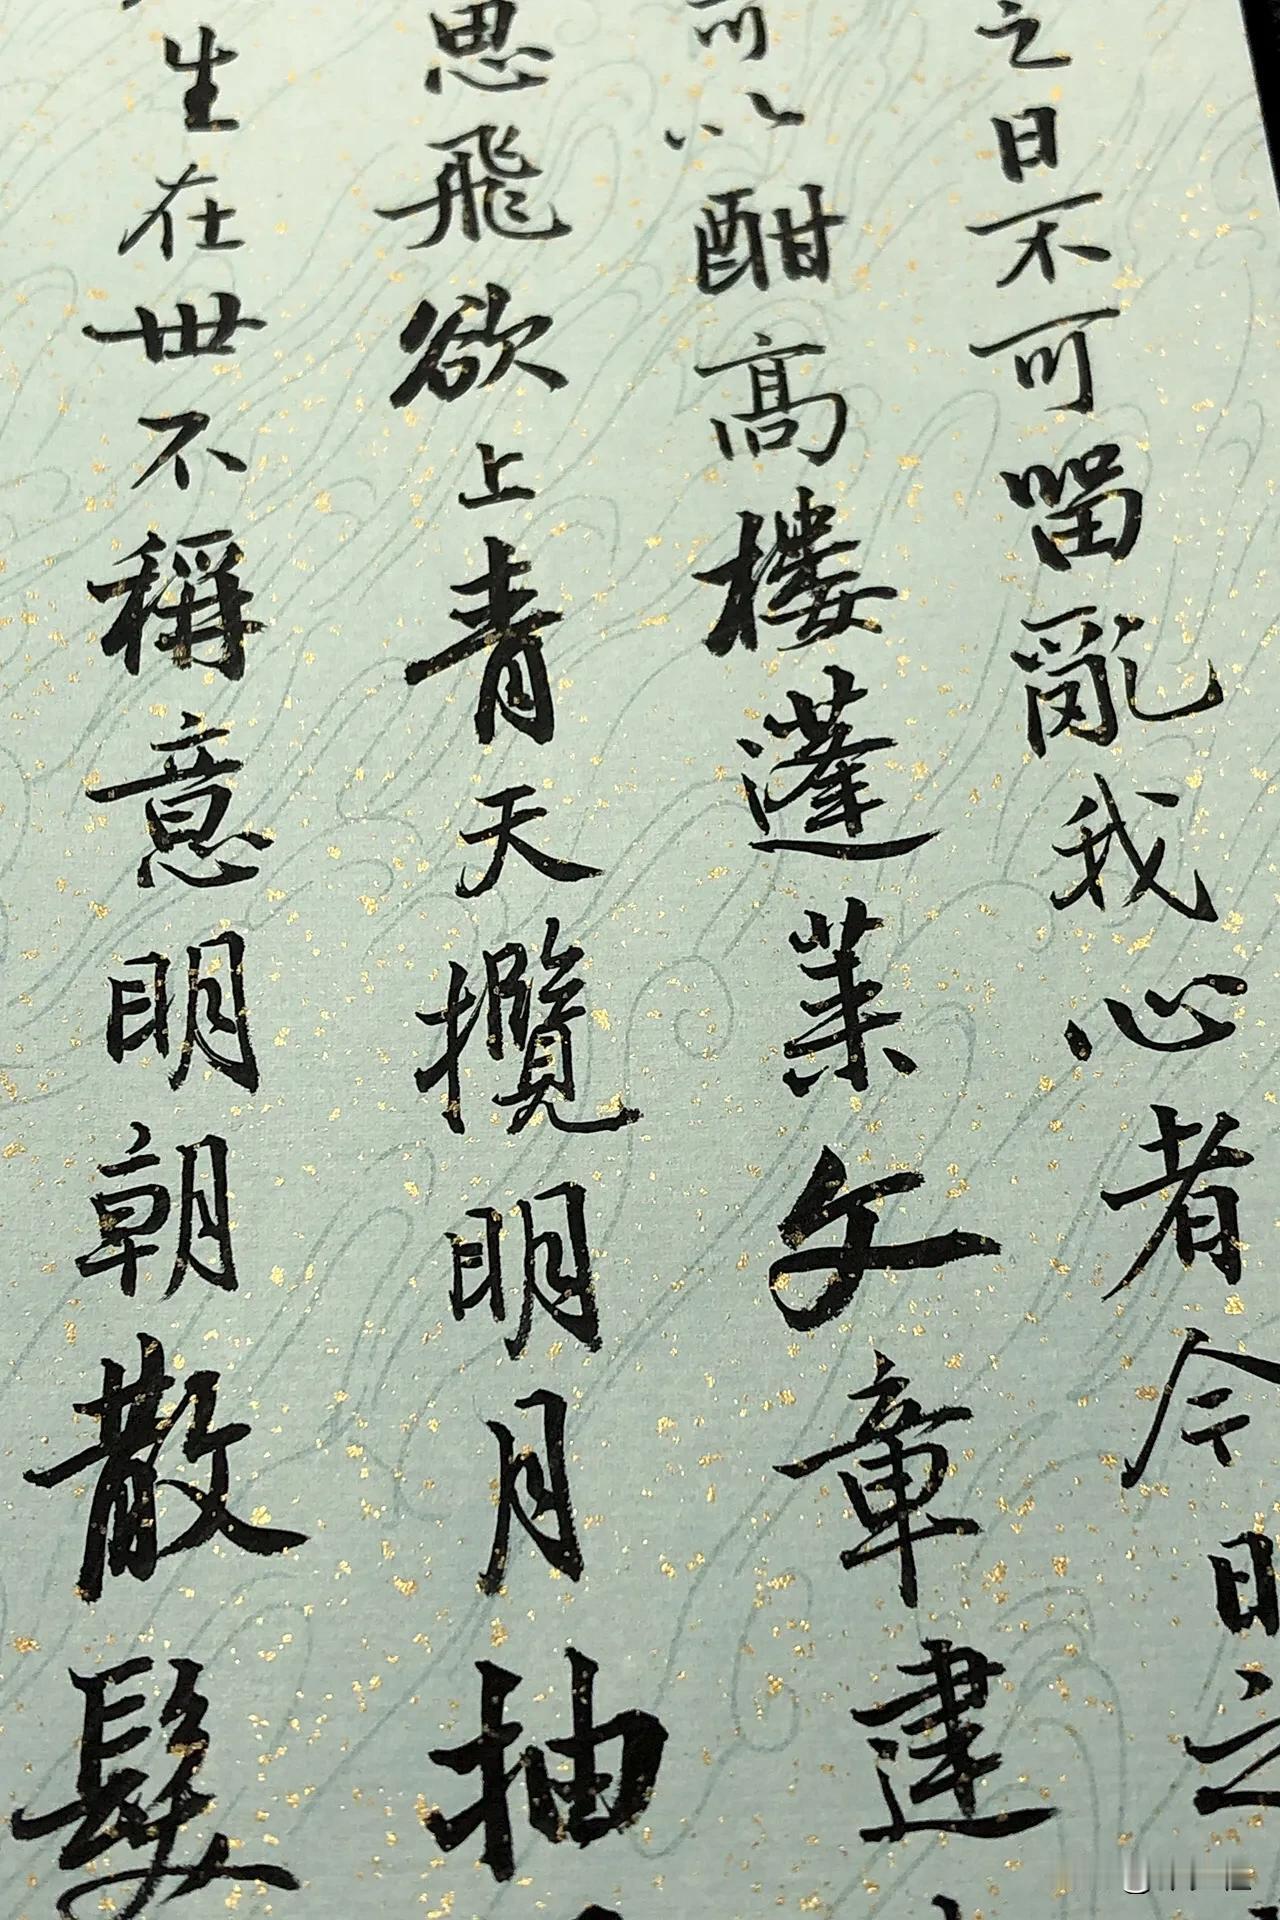 之日不可留亂我心者今日之
可以酣高樓蓬萊文章建
思飛欲上青天攬明月抽
生在世不稱意明朝散髮